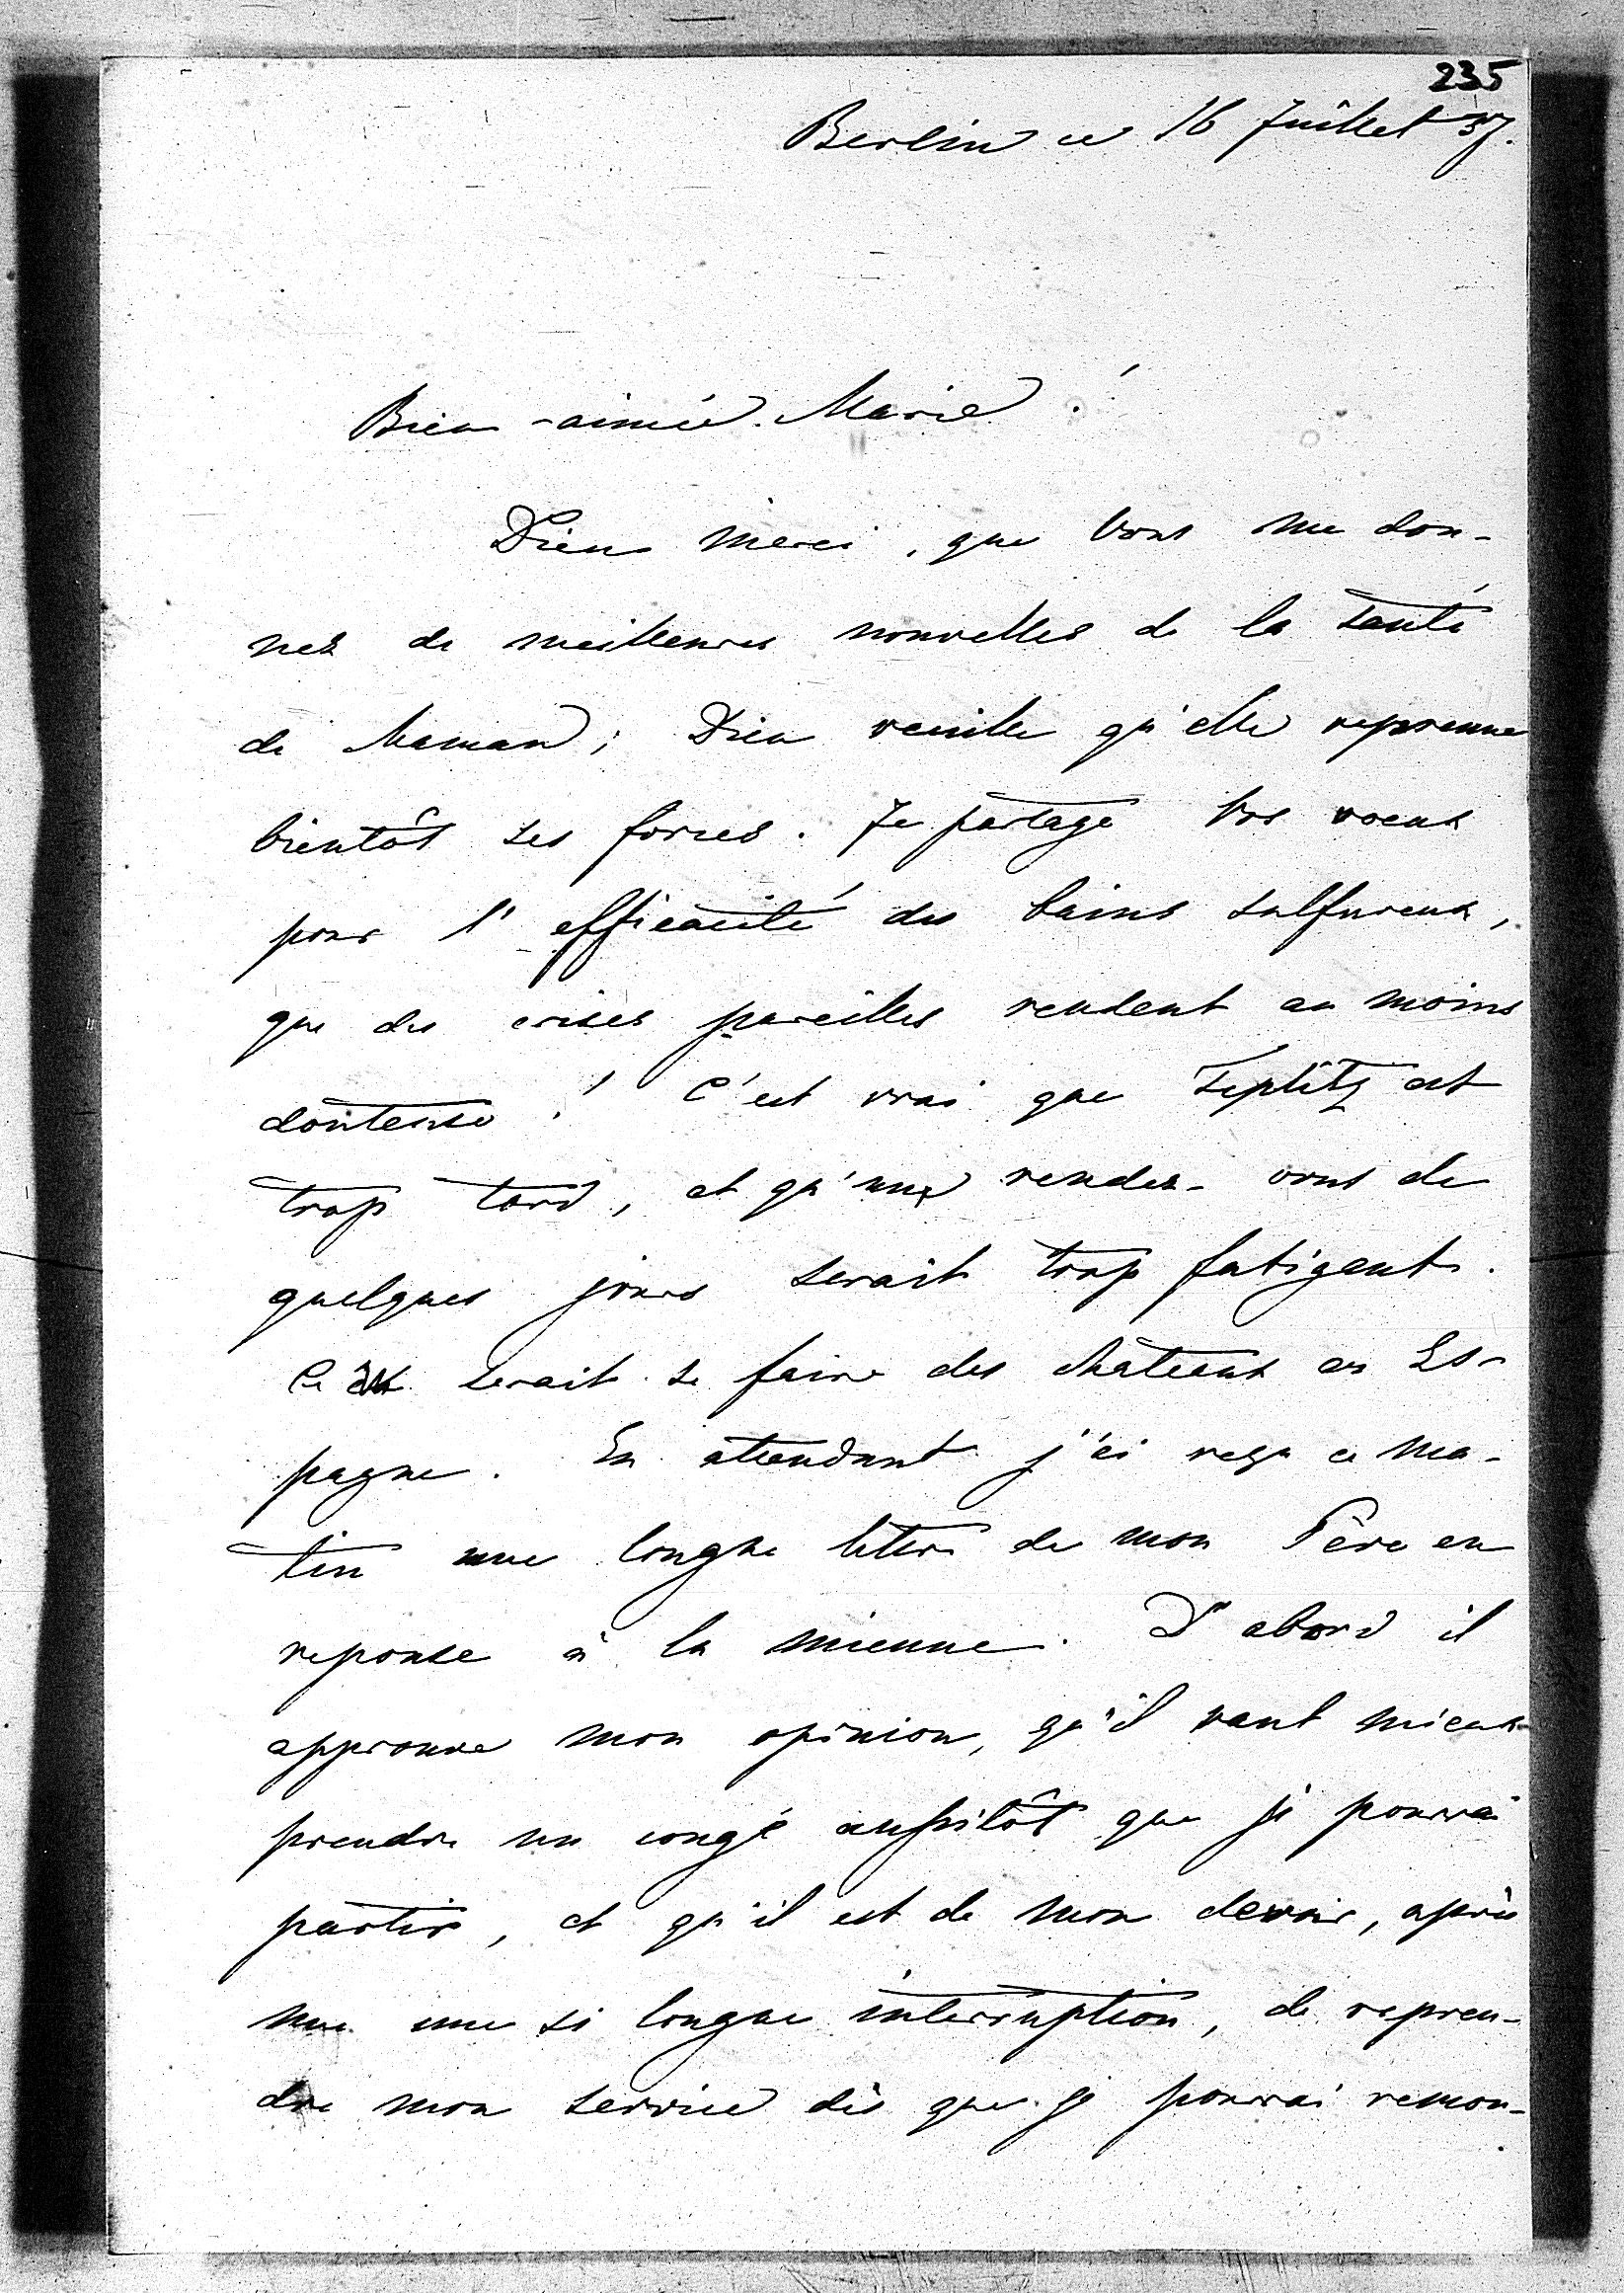 235
Berlin ce 16 Juillet 37.
Bien-aimée Marie!
Dieu merci, que Vous me don-
nez de meilleures nouvelles de la santé
de Maman; Dieu veuille qu'elle reprenne
bientôt ses forces. Je partage Vos voeux
pour l'efficacité des bains sulfureux,
que des crises pareilles rendent au moins
douteuse! C'est vrai que Teplitz est
trop tard, et qu'une rendez-vous de
quelques jours serait trop fatigant.
Ce serait se faire des châteaux en Es-
pagne. En attendant j'ai reçu ce ma-
tin une longue lettre de mon Père en
reponse à la mienne. D'abord il
approuve mon opinion, qu'il vaut mieux
prendre un congé aussitôt que je pourrai
partir, et qu'il est de mon devoir, après
une si longue interruption, de repren-
dre mon service dès que je pourrai remon-